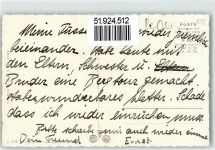 51.924.512
Meine Füsse wieder
beieinander. Habe heute mit
den Eltern, Schwester u.
Bruder eine Bergtour gemacht.
Haben wunderbares Wetter. Schade
dass ich wieder einrücken muss.
Bitte schreib mir auch wieder eine
Dein Freund Ernst